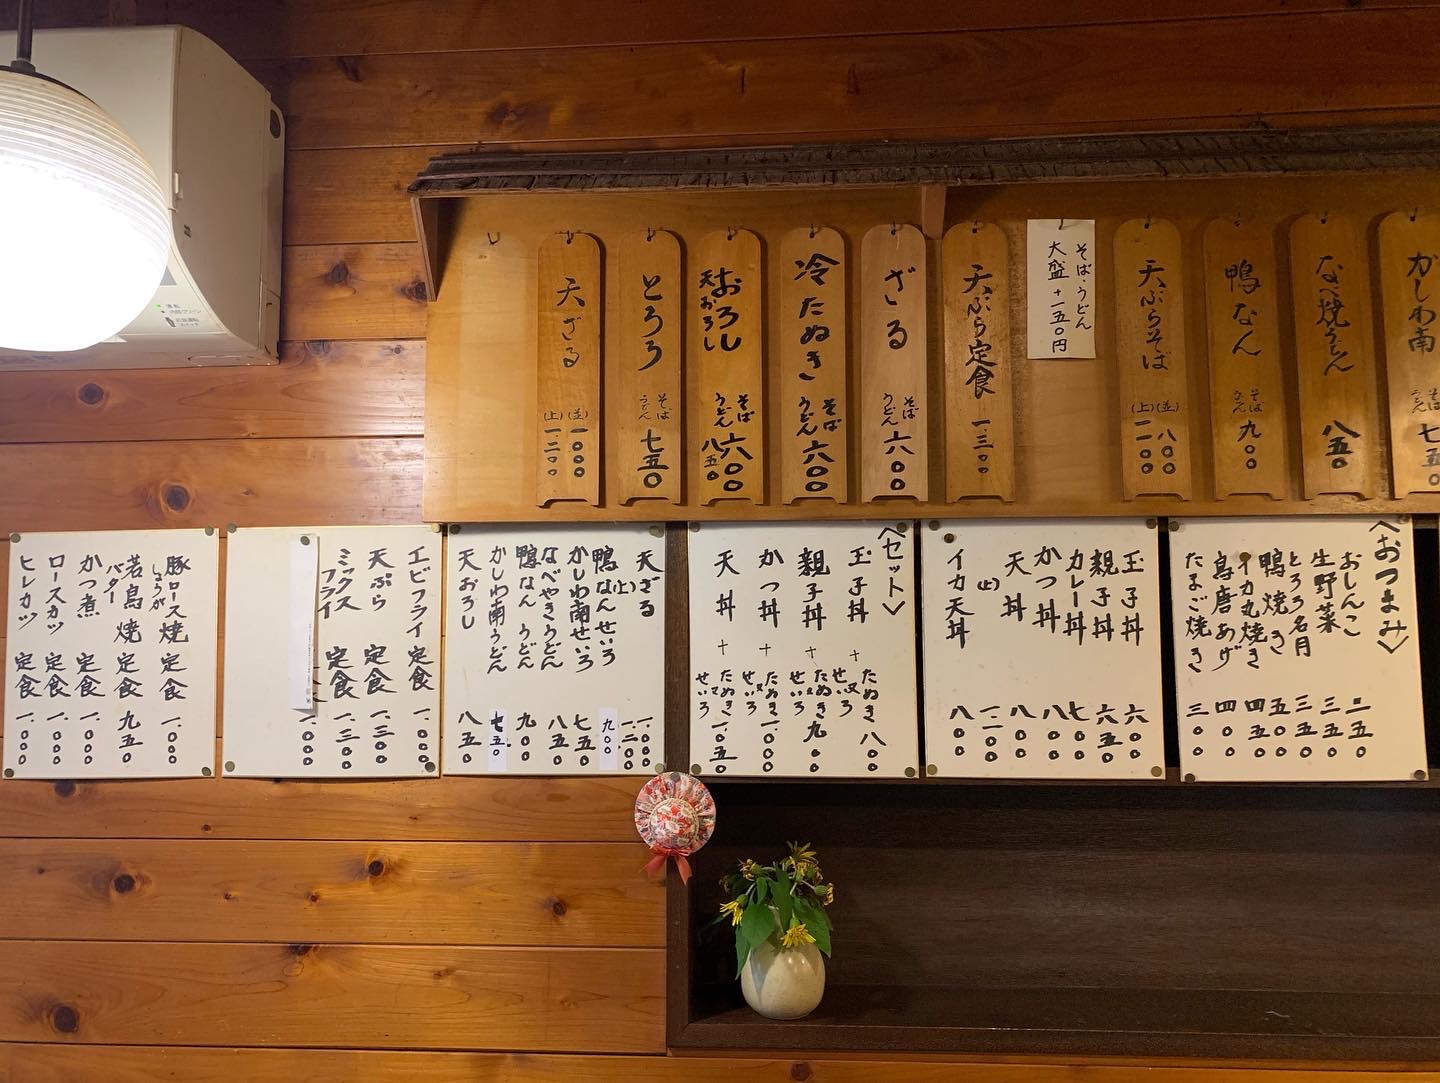 かしわ南 そば うどん 七五〇
なべ焼うどん 八五〇
鴨なん そば うどん 九〇〇
天ぷらそば (並) 八〇〇 (上) 一一〇〇
そば・うどん
大盛+一五〇円
天ぷら定食 一.三〇〇
ざる そば うどん 六〇〇
冷たぬき そば うどん 六〇〇
おろし そば うどん 六〇〇
天おろし 八五〇
とろろ そば うどん 七五〇
天ざる (並) 一〇〇〇 (上) 一.二〇〇
〈おつまみ〉
おしんこ 三五〇
生野菜 三五〇
とろろ名月 三五〇
鴨焼き 五五〇
イカ丸焼き 四五〇
鳥唐あげ 四〇〇
たまご焼き 三〇〇
玉子丼 六〇〇
親子丼 六五〇
カレー丼 七〇〇
かつ丼 八〇〇
天丼 八〇〇
(上) 一.二〇〇
イカ天丼 八〇〇
〈セット〉
玉子丼 + たぬき又せいろ 八〇〇
親子丼 + たぬき又せいろ 九〇〇
かつ丼 + たぬき又せいろ 一.〇〇〇
天丼 + たぬき又せいろ 一.〇五〇
天ざる 一.〇〇〇
(上) 一.二〇〇
鴨なんせいろ 九〇〇
かしわ南せいろ 七五〇
なべやきうどん 八五〇
鴨なんうどん 九〇〇
かしわ南うどん 七五〇
天おろし 八五〇
エビフライ定食 一.〇〇〇
天ぷら定食 一.三〇〇
ミックスフライ定食 一.三〇〇
一.〇〇〇
豚ロースしょうが焼定食 一.〇〇〇
若鳥バター焼定食 九五〇
かつ煮定食 一.〇〇〇
ロースカツ定食 一.〇〇〇
ヒレカツ定食 一.〇〇〇